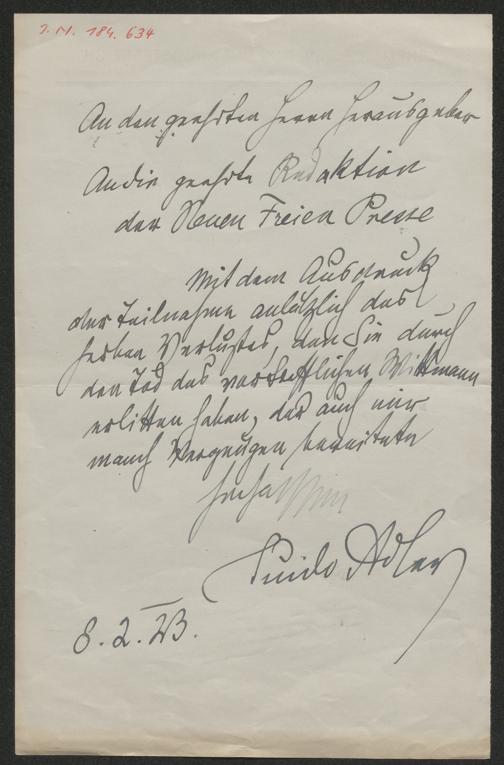 I.N. 184.634
An den geehrten Herrn Herausgeber
An die geehrte Redaktion
der Neuen Freien Presse
Mit dem Ausdruck
der Teilnahme anläßlich des
herben Verlustes, den Sie durch
den Tod des vortrefflichen Wittmann
erlitten haben, der auch mir
manch Vergnügen bereitete
Guido Adler
8.2.23.